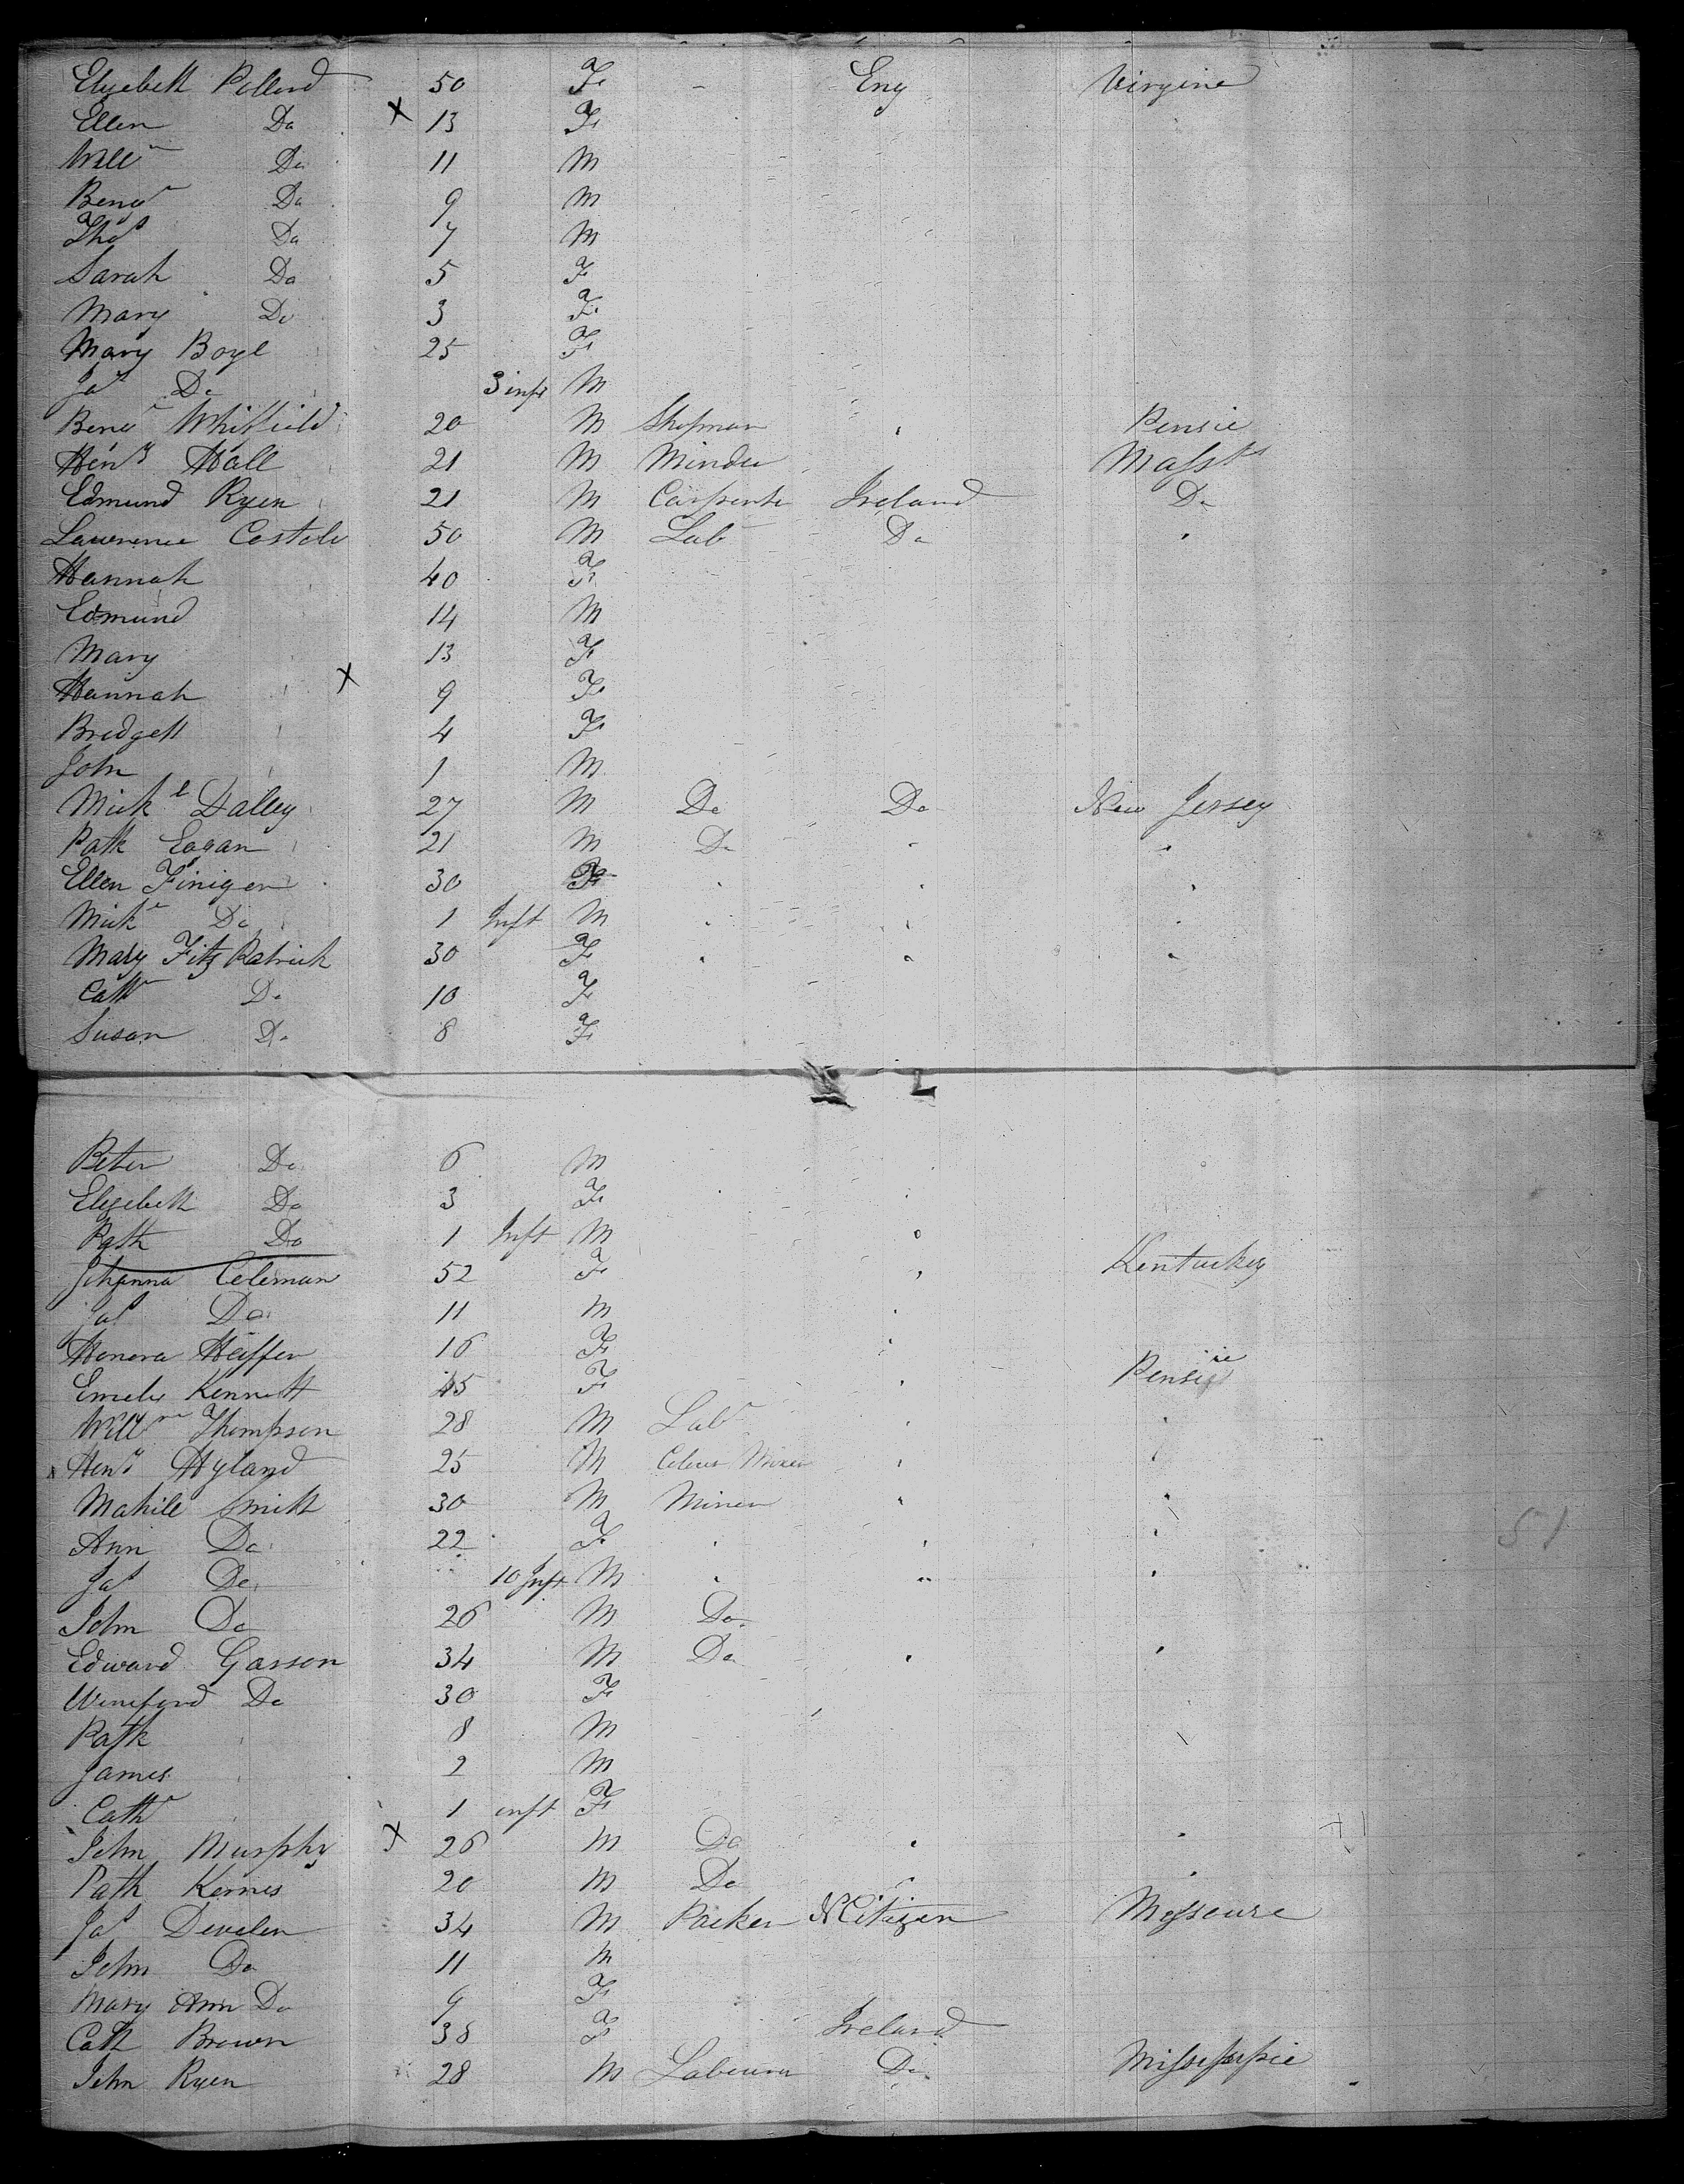 Elizebeth Pollard 50 F - Eng Virginie
Ellen Do x 13 F
Willm Do 11 M
Benj Do 9 M
Thos Do 7 M
Sarah Do 5 F
Mary Do 3 F
Mary Boyl 25 F
Jas Do 3 inft M
Benj Whitfield 20 M Shopman Pensie
Heny Hall 21 M Minder Massts
Edmund Ryen 21 M Carpente Ireland Do
Lawrence Costolo 50 M Labr Do
Hannah 40 F
Edmund 14 M
Mary 13 F
Hannah x 9 F
Bredgett 4 F
John 1 M
Mickl Dalley 27 M Do Do New Jersey
Patk Eagan 21 M Do
Ellen Finigen 30 F
Mick Do 1 Inft M
Mary Fitz Patrick 30 F
Cathr Do 10 F
Susan Do 8 F
Peter Do 6 M
Elizebeth Do 3 F
Patk Do 1 Inft M
Johanna Coleman 52 F Kentuckey
Jas Do 11 M
Honora Heffer 16 F
Emely Kennett 45 F Pensie
Willm Thompson 28 M Labr
Heny Hyland 25 M Miner
Smith 30 M Miner
Ann Do 22 F
Jas Do 10 Inft M
John Do 26 M Do
Edward Gasson 34 M Do
Wineford Do 30 F
Patk 8 M
James 2 M
Cathr 1 inft F
John Murphy x 26 M Do
Path Kernes 20 M Do
Jas Develen 34 M Packer Citizen Messeure
John Do 11 M
Mary Ann Do 9 F
Cath Brown 38 F Ireland
John Ryen 28 M Labourer Do Missessippie
51